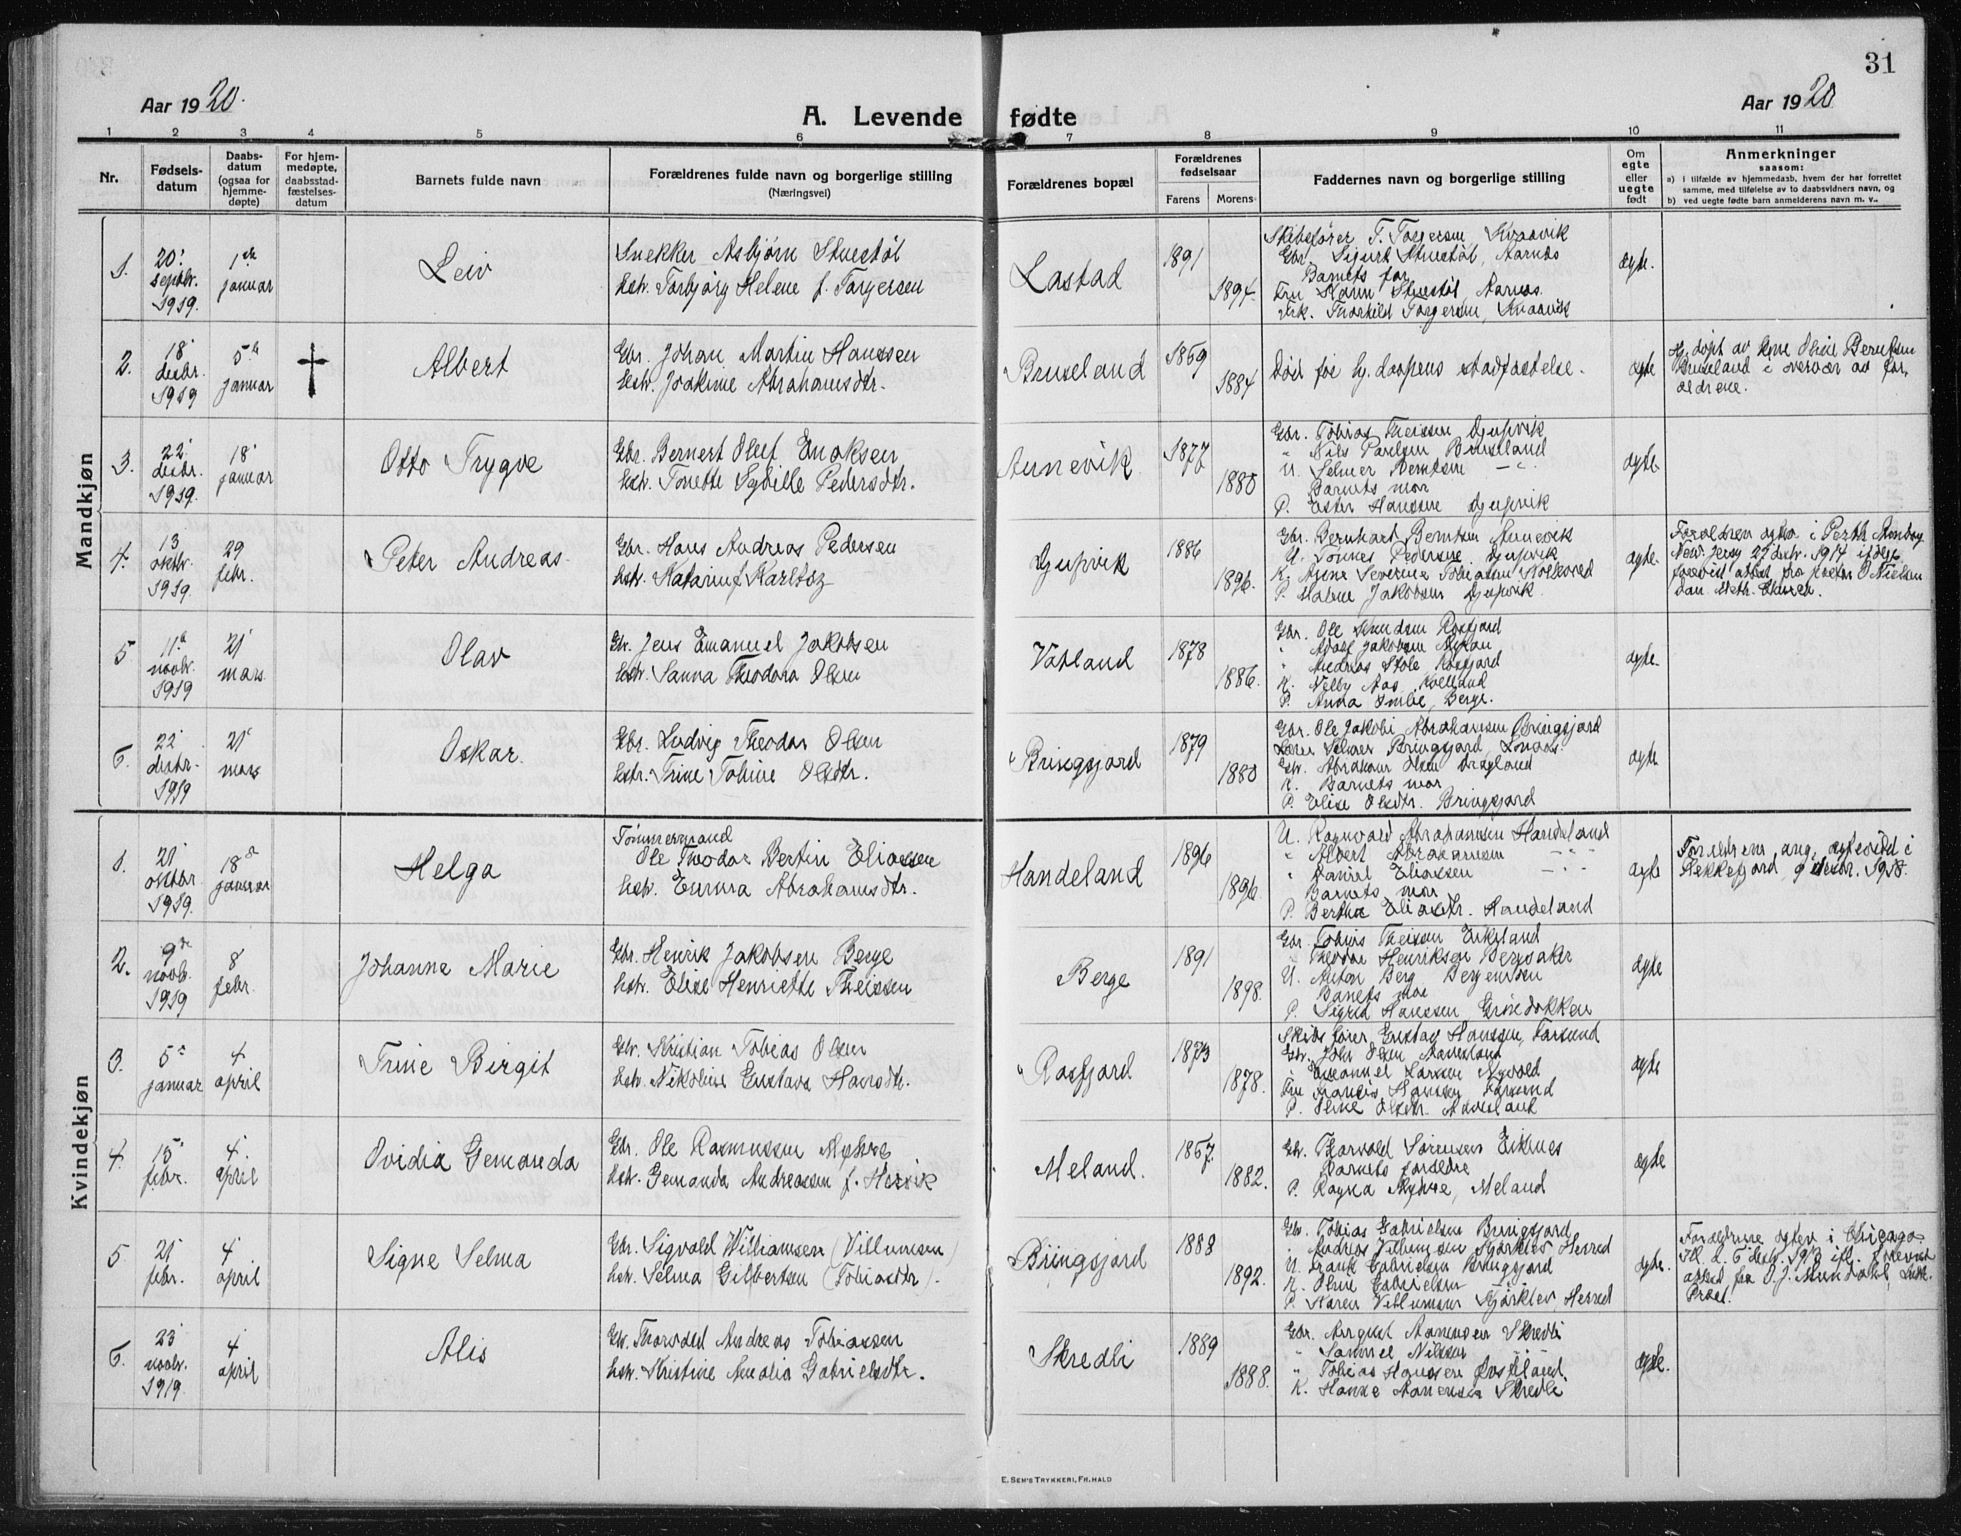 31
Aar 1920.
A. Levende fødte
Aar 1920
1 2 3 4 5 6 7 8 9 10 11
Nr.
Fødsels-
datum
Daabs-
datum
(ogsaa for
hjemme-
døpte)
For hjem-
medøpte,
daabsstad-
fæstelses-
datum
Barnets fulde navn
Forældrenes fulde navn og borgerlige stilling
(Næringsvei)
Forældrenes bopæl
Forældrenes
fødselsaar
Farens Morens
Faddernes navn og borgerlige stilling
Om
egte
eller
uegte
født
Anmerkninger
saasom:
a) i tilfælde av hjemmedaab, hvem der har forrettet
samme, med tilføielse av to daabsvidners navn, og
b) ved uegte fødte barn anmelderens navn m. v..
Mandkjøn
1. 20. septbr. 1919. 1ste januar
Leiv
Snekker Asbjørn Stuestøl
hstr. Torbjørg Helene f. Torgersen
Lastad
1891
1894.
Skibsfører T. Torgersen, Kvaavik
Gbr. Sigurt Stuestøl, Aarnes
Barnets far
Fru Karin Stuestøl, Aarnes.
Frk. Thorhild Torgersen, Kvaavik
ægte.
2. 18 decbr. 1919 5. januar
†
Albert
Gbr. Johan Martin Hanssen
hstr. Joakime Abrahamsdtr.
Bruseland
1859
1884
Død før hj. daapens stadfæstelse.
ægte
Hj. døpt av
Bruseland i overvær av for,
ældrene.
3. 22. decbr. 1919. 18. januar
Otto Trygve
Gbr. Bernert Oluf Enoksen
hstr. Tonette Sybille Pedersdtr.
Aunevik
1877
1880
Gbr. Tobias Theissen Djupvik
" Nils Paulsen Bruseland
U. Selmer Berntsen — " —
Barnets mor
P. Ester Hanssen Djupvik
ægte
4. 13 oktbr. 1919 29 febr.
Peter Andreas.
Gbr. Hans Andreas Pedersen
hstr. Katarin f. Karltoz
Djupvik
1886
1896.
Gbr. Bernhart Berntsen Aunevik
U. Tønnes Pedersen Djupvik
K. Anne Severine Tobiassen
P. Malene Jakobsen Djupvik.
ægte.
Forældren ægtev. i Perth Amboy
New Jersy 27 decbr. 1914 ifølge
forevist attest fra pastor O Nielsen
5 11te novbr. 1919 21. mars
Olav
Gbr. Jens Emanuel Jakobsen
hstr. Sanna Theodora Olsen
Vatland
1878
1886.
Gbr. Ole Knudsen Rosfjord
" Adolf Jakobsen
" Andreas Støle Rosfjord
K. Nelly Aas,
P. Anna Berge.
ægte.
6. 22. decbr. 1919 21. mars
Oskar.
Gbr. Ludvig Theodor Olsen
hstr. Trine Tobine Olsdtr.
Bringsjord
1879
1880
Gbr. Ole Jakobi Abrahamsen Bringsjord
Lærer Selmer Bringsjord,
Gbr. Abraham Olsen
K. Barnets mor
P. Elise Olsdtr. Bringsjord
ægte
Kvindekjøn
1. 21 oktbr. 1919. 18de januar
Helga
Tømmermand
Ole Theodor Bertin Eliassen
hstr. Emma Abrahamsdtr.
Handeland
1896
1896.
U. Ragnvald Abrahamsen Handeland
" Albert Abrahamsen — " —
" Daniel Eliassen — " —
Barnets mor
P. Bertha Eliasdtr. Handeland
ægte
Forældrene ang. ægteviet i
Flekkefjord, 9 decbr. 1918.
2. 9de novb. 1919 8 febr.
Johanne Marie
Gbr. Henrik Jakobsen Berge
hstr. Elise Henriette Theissen
Berge
1891
1898.
Gbr. Tobias Theissen Eikeland
" Theodor Henriksen Bergsaker
U. Anton Berg Bergensen
Barnets mor
P. Sigrid Hanssen
ægte
3. 5te januar 4 april
Trine Birgit
Gbr. Kristian Tobias Olsen
hstr. Nikoline Gustava Hansdtr.
Rosfjord
1873
1878.
Skibsfører Gustav Hanssen, Farsund
Gbr. John Olsen
" Emanuel Larsen
Fru Francis Hanssen Farsund
P. Oline Olsdtr.
ægte
4. 15 febr. 4. april
Ovidia Gemanda
Gbr. Ole Rasmussen Myhre
hstr. Gemanda Andreassen f. Hervik
Meland.
1857.
1882.
Gbr. Thorvald Sørensen Eiknes
Barnets forældre
P. Ragna Myhre, Meland
ægte
5 21. febr. 4 april
Signe Selma
Gbr. Sigvald Williamsen (Villumsen)
hstr. Selma Gilbertsen (Tobiasdtr).
Bringsjord
1888
1892.
Gbr. Tobias Gabrielsen Bringsjord
" Andreas Villumsen Herred
U. Frank Gabrielsen Bringsjord
K. Oline Gabrielsen — " —
P. Karen Villumsen Herred
ægte.
Forældrene ægtev. i Chicago.
Ill. d. 6 decb. 1913 ifl. forevist
attest fra O. J.
6. 23 novbr. 1919. 4 april
Alis
Gbr. Thorvald Andreas Tobiassen
hstr. Kristine Amalia Gabrielsdtr.
Skredli
1889
1888.
Gbr. August Aanensen Skredli
" Samuel Nilssen — " —
" Tobias Hanssen
K. Hanne Aanensen Skredli
ægte.
E. SEM'S TRYKKERI, FR.HALD